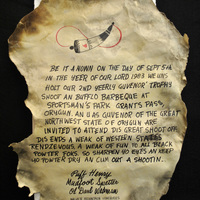 BE IT KNOWN ON THE DAY OF SEPT 5th
IN THE YEER OF OUR LORD 1983 WE WILL
HOLT OUR 2ND YEERLY GUVENOR TROPHY
SHOOT AN BUFFLO BARBEQUE AT
SPORTSMAN'S PARK GRANTS PASS,
ORYGUN. AN U AS GUVENOR OF THE GREAT
NORTHWEST STATE OF ORYGUN ARE
INVITED TO ATTEND DIS GREAT SHOOT OFF
DIS ENDS A WEAK OF WESTERN STATES
RENDEZVOUS A WEAK OF FUN TO ALL BLACK
POWTER FOKS. SO SHARPEN YO EYES AN KEEP
YO POWTER DRY AN CUM OUT A SHOOTIN.
Puff Henry